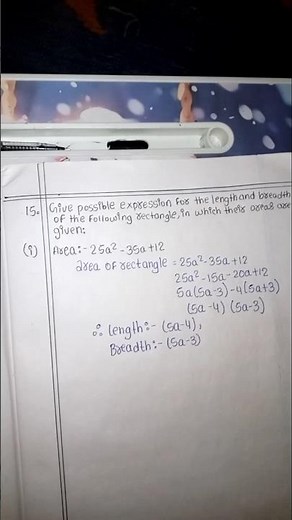 15. Give possible expression for the length and breadth
of the following rectangle, in which their areas are
given:
(i) Area:- 25a² - 35a + 12
area of rectangle = 25a² - 35a + 12
25a² - 15a - 20a + 12
5a(5a - 3) - 4(5a + 3)
(5a - 4) (5a - 3)
∴ length:- (5a - 4),
Breadth:- (5a - 3)